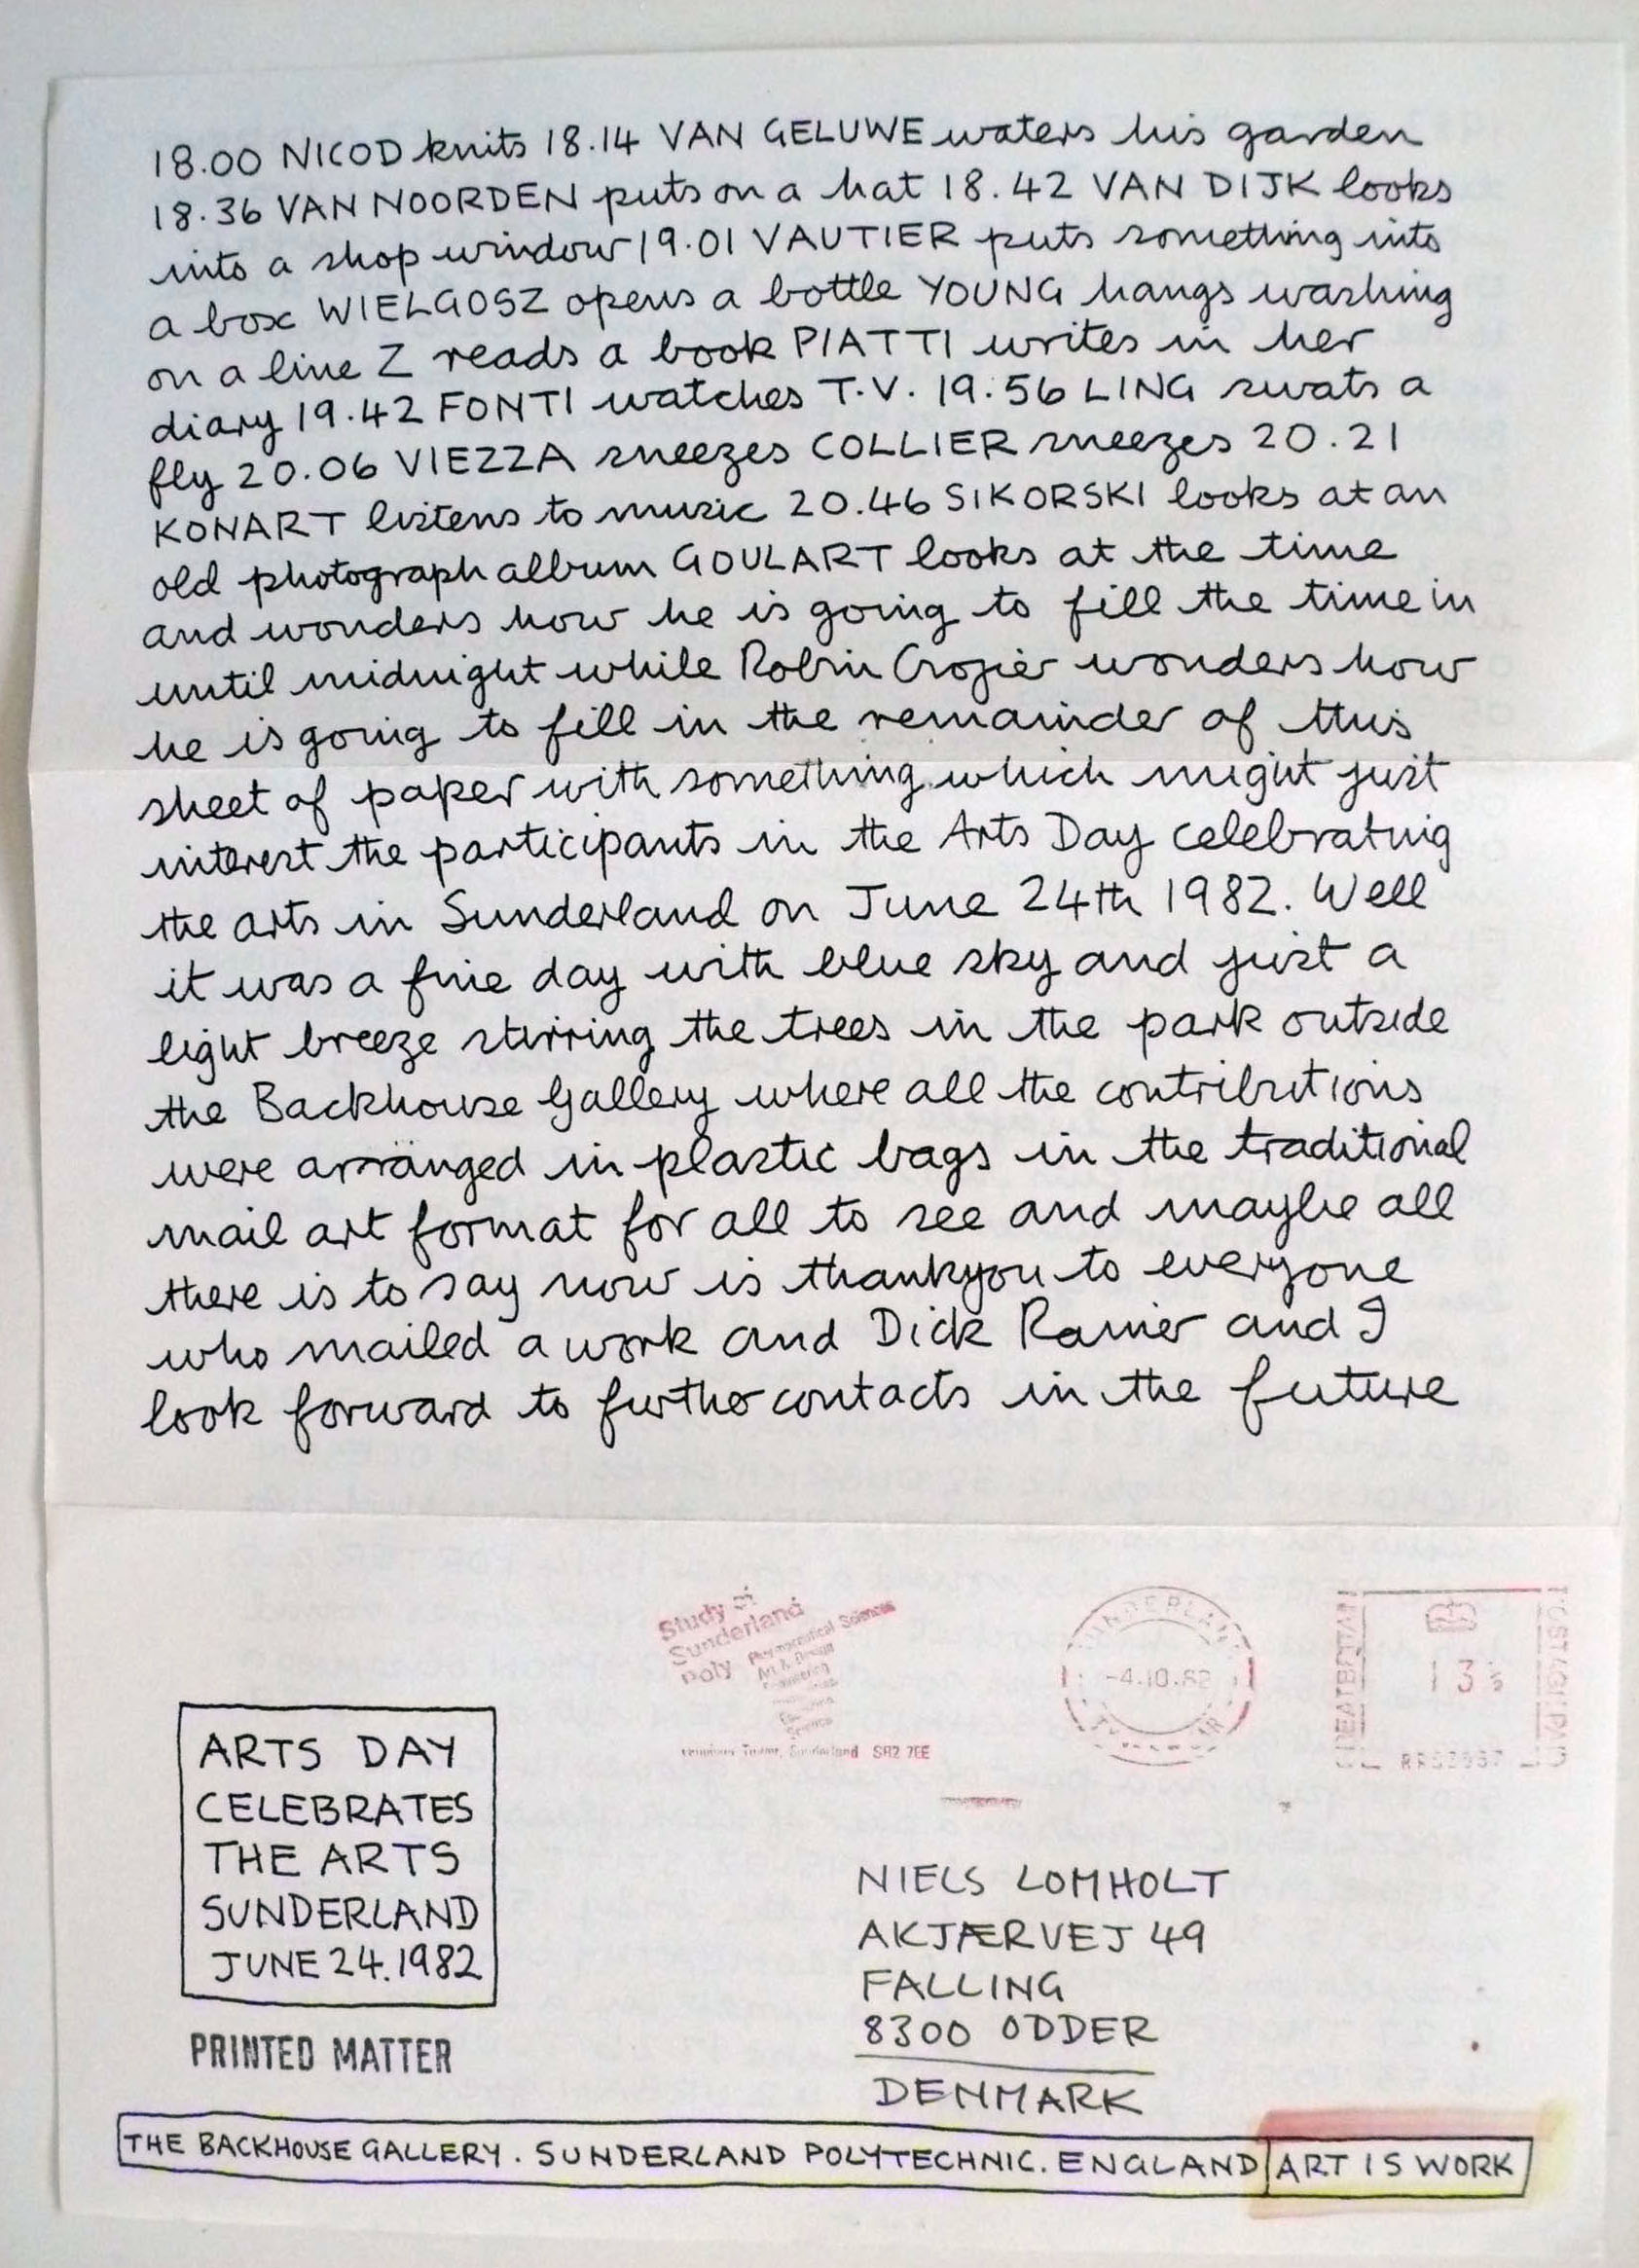 18.00 NICOD knits 18.14 VAN GELUWE waters his garden
18.36 VAN NOORDEN puts on a hat 18.42 VAN DIJK looks
into a shop window 19.01 VAUTIER puts something into
a box WIELGOSZ opens a bottle YOUNG hangs washing
on a line Z reads a book PIATTI writes in her
diary 19.42 FONTI watches T.V. 19.56 LING swats a
fly 20.06 VIEZZA sneezes COLLIER sneezes 20.21
KONART listens to music 20.46 SIKORSKI looks at an
old photograph album GOULART looks at the time
and wonders how he is going to fill the time in
until midnight while Robin Crozier wonders how
he is going to fill in the remainder of this
sheet of paper with something which might just
interest the participants in the Arts Day celebrating
the arts in Sunderland on June 24th 1982. Well
it was a fine day with blue sky and just a
light breeze stirring the trees in the park outside
the Backhouse Gallery where all the contributions
were arranged in plastic bags in the traditional
mail art format for all to see and maybe all
there is to say now is thankyou to everyone
who mailed a work and Dick Rainer and I
look forward to further contacts in the future
Study at
Sunderland
Poly
Pharmaceutical Sciences
Art & Design
Engineering
Science
Tower, Sunderland SR2 7EE
SUNDERLAND
-4.10.82
TYNE & WEAR
GREAT BRITAIN
POSTAGE PAID
13½
ARTS DAY
CELEBRATES
THE ARTS
SUNDERLAND
JUNE 24.1982
PRINTED MATTER
NIELS LOMHOLT
AKJÆRVEJ 49
FALLING
8300 ODDER
DENMARK
THE BACKHOUSE GALLERY. SUNDERLAND POLYTECHNIC. ENGLAND ART IS WORK